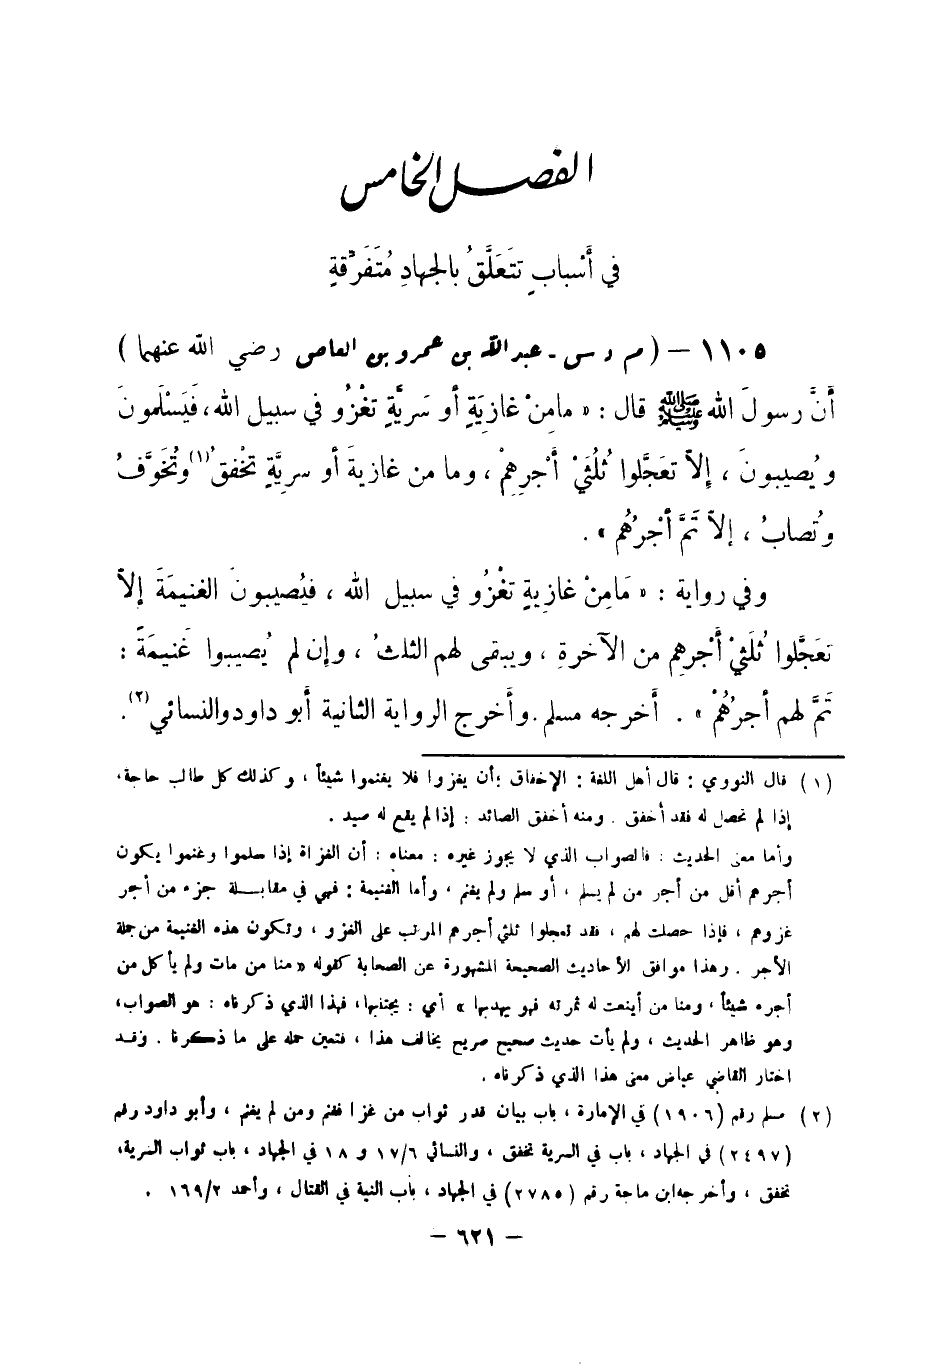 الفصل الخامس
في أَسْبابٍ تتَعَلَّقُ بالجهادِ مُتَفَرِّقةٍ
١١٠٥ – (م د س - عبد الله بن عمرو بن العاص رضي الله عنهما)
أنَّ رسولَ الله ﷺ قال : « مامِنْ غازيَةٍ أو سَريَّةٍ تغْزُو في سبيل الله، فَيَسْلَمونَ
ويُصيبونَ ، إلاَّ تعَجَّلوا ثُلُثَيْ أجْرِهِمْ ، وما من غازيةَ أو سريَّةٍ تخْفقُ(١) وتُخَوَّفُ
وتُصابُ ، إلاَّ تَمَّ أجْرُهُم » .
وفي رواية : « مَامِنْ غازِيةٍ تغْزُو في سبيل الله ، فيُصيبونَ الغنيمَةَ إلاَّ
تعَجَّلوا ثُلَثَيْ أجْرِهِم من الآخرةِ ، ويبقى لهم الثلثُ ، وإن لم يُصيبوا غَنيمَةً :
تَمَّ لهم أجرُهُمْ » . أخرجه مسلم . وأخرج الرواية الثانية أبو داود والنسائي(٢) .
(١) قال النووي : قال أهل اللغة : الإخفاق ؛ أن يغزوا فلا يغنموا شيئاً ، وكذلك كل طالب حاجة،
إذا لم تحصل له فقد أخفق . ومنه أخفق الصائد : إذا لم يقع له صيد .
وأما معنى الحديث : فالصواب الذي لا يجوز غيره : معناه : أن الغزاة إذا سلموا وغنموا يكون
أجرهم أقل من أجر من لم يسلم ، أو سلم ولم يغنم ، وأما الغنيمة : فهي في مقابلة جزء من أجر
غزوهم ، فإذا حصلت لهم ، فقد تعجلوا ثلثي أجرهم المرتب على الغزو ، وتكون هذه الغنيمة من جملة
الأجر . وهذا موافق الأحاديث الصحيحة المشهورة عن الصحابة كقوله « منا من مات ولم يأكل من
أجره شيئاً ، ومنا من أينعت له ثمرته فهو يهدبها » أي : يجتنيها، فهذا الذي ذكرناه : هو الصواب،
وهو ظاهر الحديث ، ولم يأت حديث صحيح صريح يخالف هذا ، فتعين حمله على ما ذكرنا . وقد
اختار القاضي عياض معنى هذا الذي ذكرناه .
(٢) مسلم رقم (١٩٠٦) في الإمارة ، باب بيان قدر ثواب من غزا فغنم ومن لم يغنم ، وأبو داود رقم
(٢٤٩٧) في الجهاد ، باب في السرية تخفق ، والنسائي ١٧/٦ و ١٨ في الجهاد ، باب ثواب السرية،
تخفق ، وأخرجه ابن ماجة رقم (٢٧٨٥) في الجهاد ، باب النية في القتال ، وأحمد ١٦٩/٢ .
– ٦٢١ –